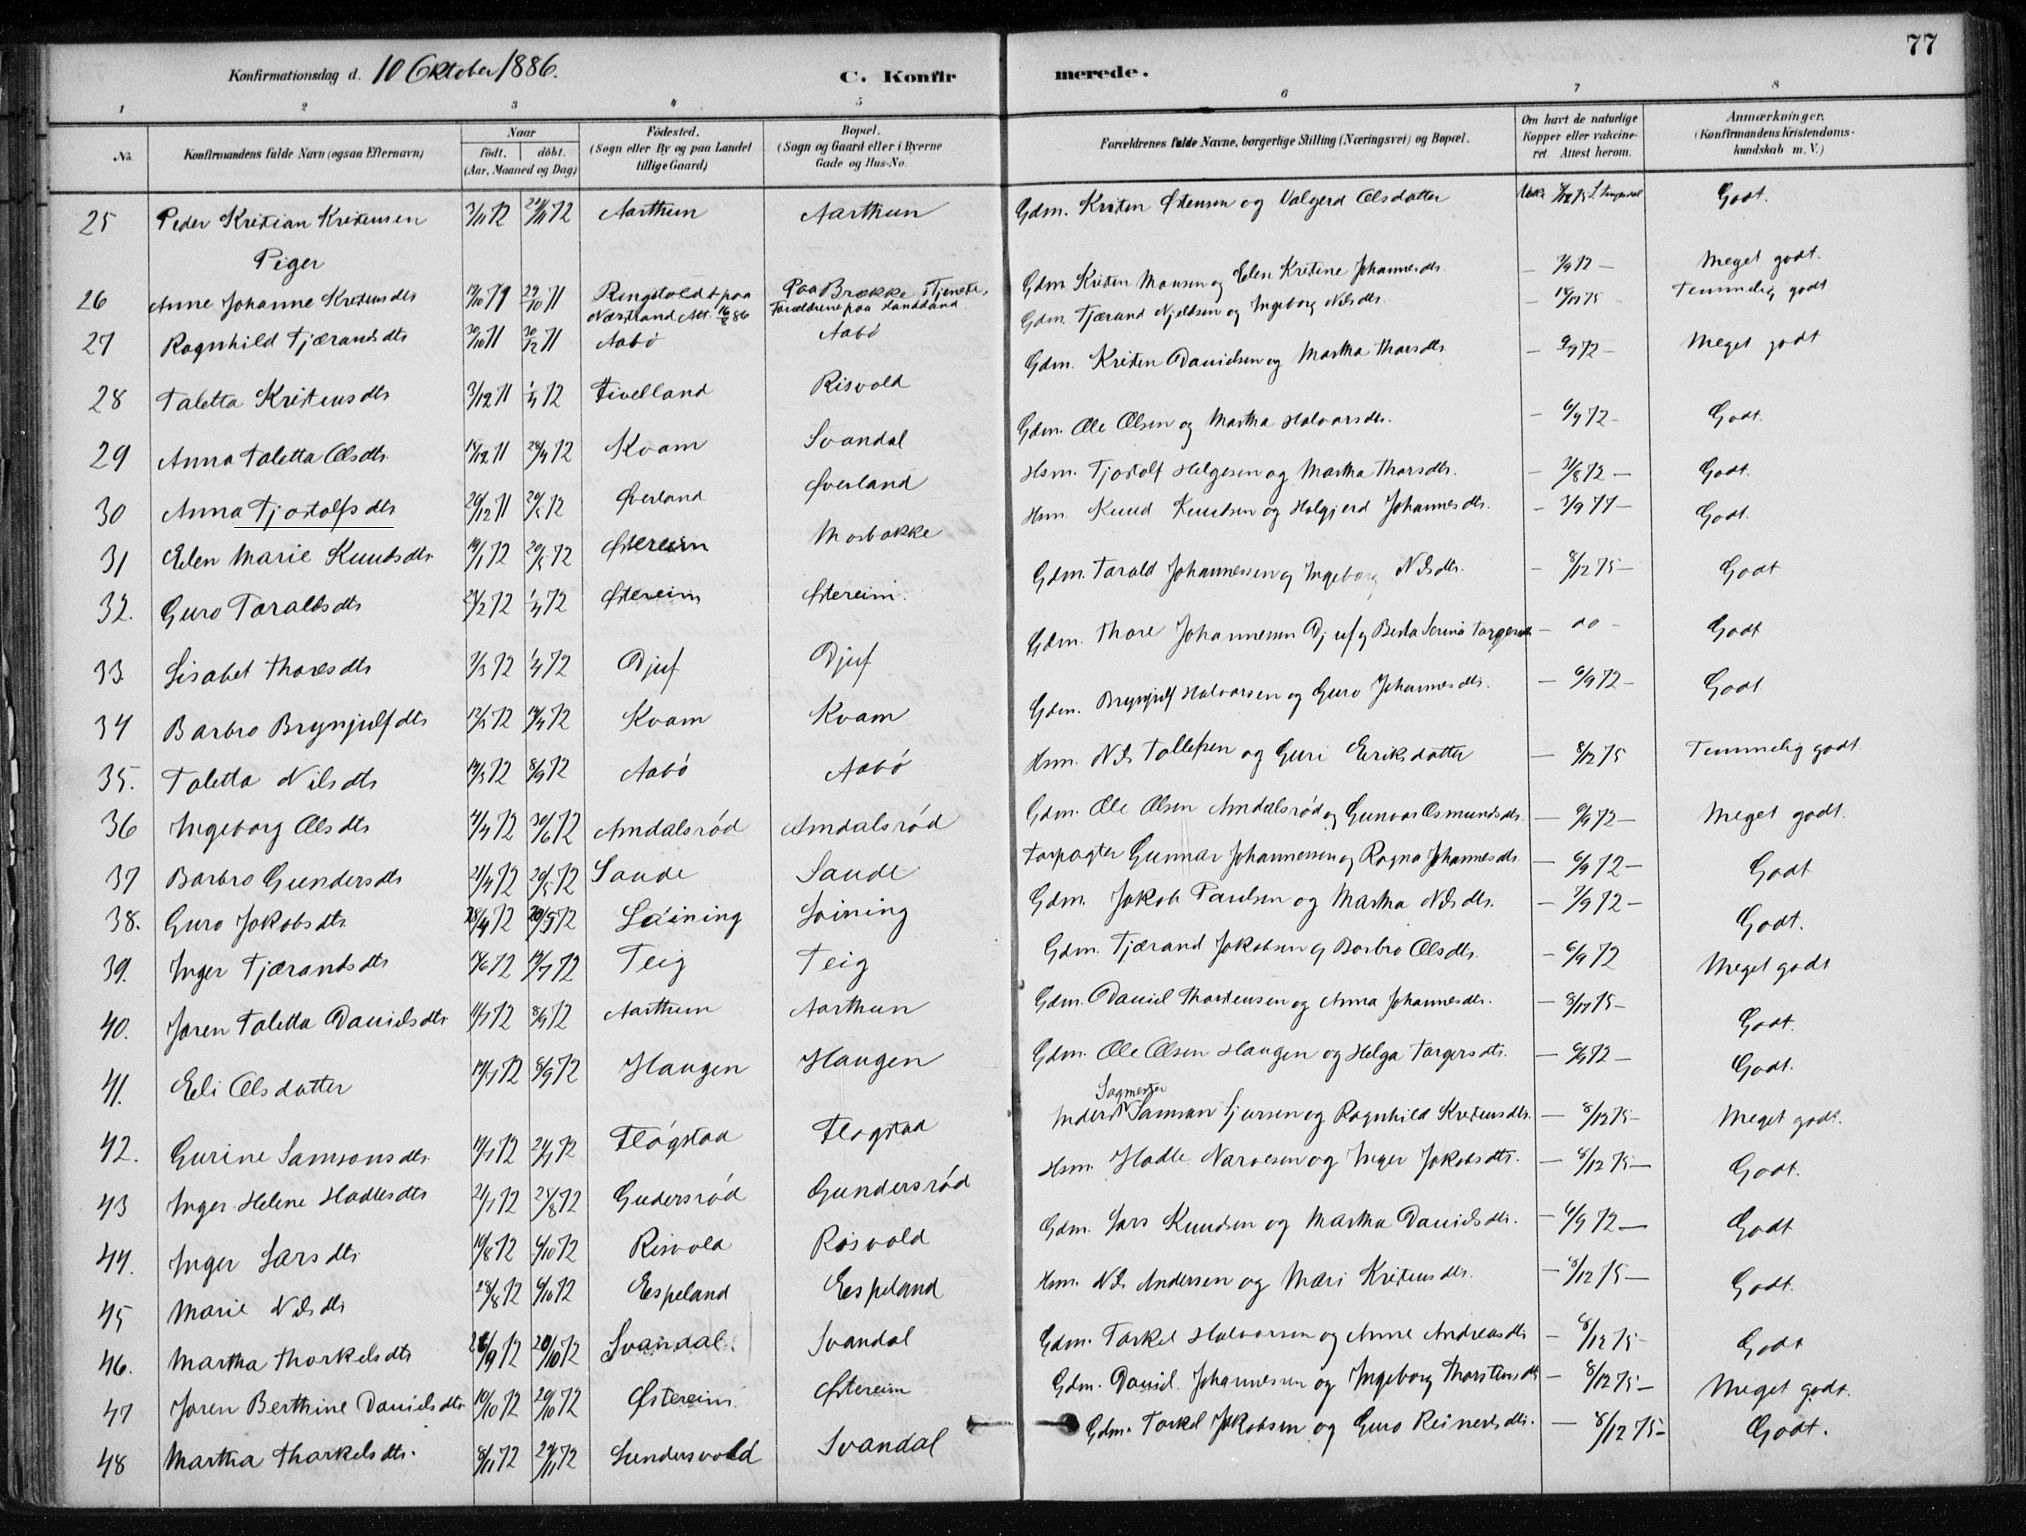 77
Konfirmationsdag d. 10 Oktober 1886.
C. Konfir
merede.
1 2 3 4 5 6 7 8
No.
Konfirmandens fulde Navn (ogsaa Efternavn)
Naar
födt. döbt.
(Aar, Maaned og Dag)
Födested.
(Sogn eller By og paa Landet
tillige Gaard)
Bopæl.
(Sogn og Gaard eller i Byerne
Gade og Hus-No.
Forældrenes fulde Navne, borgerlige Stilling (Næringsvei) og Bopæl.
Om havt de naturlige
Kopper eller vakcine-
ret Attest herom.
Anmærkninger.
(Konfirmandens Kristendoms-
kundskab m. V.)
25 Peder Kristian Kristensen 3/11 72 /11 72 Aarthun Aarthun Gdm. Kristen Østensen og Valgerd Olsdatter Godt.
Piger
26 Anne Johanne Kristensdtr /10 71 29/10 71 paa Nærstrand Att. 16/8 86 Paa Brække i Tjeneste, Forældrene paa Landdand. Gdm Kristen Monsen og Elen Kristine Johannesdtr. Meget godt.
27 Ragnhild Tjærandsdtr 30/10 71 30/12 71 Aabö Aabö Gdm. Tjærand Njeldsen og Ingeborg Nilsdtr. Temmelig godt
28 Taletta Kristensdtr 3/12 71 1/4 72 Fivelland Risvold Gdm. Kristen Danielsen og Martha Thorsdtr Meget godt
29 Anna Taletta Olsdtr /12 71 28/4 72 Kvam Svandal Gdm. Ole Olsen og Martha Halvorsdtr. – 6/9 72 – Godt.
30 Anna Tjostolfsdtr 20/12 71 20/5 72 Øverland Øverland Hsm. Tjostolf Helgesen og Martha Thorsdtr. /8 72 – Godt.
31 Elen Marie Knudsdtr. 19/1 72 20/5 72 Østereim Mosbakke Hsm. Knud Knudsen og Holgjerd Johannesdtr. – 3/9 77 – Godt.
32. Guro Taraldsdtr /2 72 1/4 72 Østereim Østereim. Gdm. Tarald Johannessen og Ingeborg Nilsdtr. – 8/12 75 – Godt
33 Lisabet Thoresdtr 7/3 72 1/4 72 Djuf Djuf Gdm. Thore Johannesen Djuf og Berta Serina – do – Godt
34 Barbro Brynjulfdtr 12/3 72 14/4 72 Kvam Kvam Gdm. Brynjulf Halvorsen og Guro Johannesdtr. – 6/9 72 – Godt.
35. Taletta Nilsdtr /3 72 8/9 72 Aabö Aabö Hsm. Nils Tollefsen og Guri Eriksdatter – 8/12 75 Temmelig godt
36 Ingeborg Olsdtr 4/4 72 30/6 72 Amdalsröd Amdalsröd Gdm. Ole Olsen Amdalsröd og Gunvor Osmundsdtr. – 6/9 72 – Meget godt.
37 Barbro Gundersdtr 21/4 72 20/5 72 Saude Saude Forpagter Gunnar Johannessen og Ragna Johannesdtr. – 6/9 72 – Godt
38. Guro Jakobsdtr. 28/4 72 20/5 72 Söining Söining Gdm. Jakob Paulsen og Martha Nilsdtr. – 7/9 72 – Godt.
39. Inger Tjærandsdtr /6 72 14/7 72 Teig Teig Gdm. Tjærand Jakobsen og Barbro Olsdtr. – 6/9 72 Meget godt
40. Joren Taletta Danielsdtr /7 72 8/9 72 Aarthun Aarthun Gdm. Daniel Thorstensen og Anna Johannesdtr. – 8/12 75 – Godt.
41. Eli Olsdatter /7 72 8/9 72 Haugen Haugen Gdm. Ole Olsen Haugen og Helga Torgersdtr. – 6/9 72 – Godt.
42. Gurine Samsonsdtr. /7 72 /7 72 Flögstad Flogstad Sagmester Samson Sjursen og Ragnhild Kristensdtr. – 8/12 75 – Meget godt.
43 Inger Helene Hadlesdtr 21/7 72 25/8 72 Gudersröd Gundersröd Hsm. Hadle Narvesen og Inger Jakobsdtr. – 8/12 75 – Godt.
44. Inger Larsdtr. 10/8 72 6/10 72 Risvold Risvold Gdm. Lars Knudsen og Martha Danielsdtr. – 6/9 72 – Godt
45 Marie Nilsdtr 28/8 72 6/10 72 Espeland Espeland Hsm. Nils Andersen og Mari Kristensdtr. – 8/12 75 – Godt.
46. Martha Thorkelsdtr 26/9 72 20/10 72 Svandal. Svandal Gdm. Torkel Halvorsen og Anne Andreasdtr – 8/12 75 – Godt
47 Joren Berthine Danielsdtr. 10/10 72 20/10 72 Østereim Østereim Gdm. Daniel Johannesen og Ingeborg Thorstensdtr – 8/12 75 – Meget godt.
48 Martha Thorkelsdtr. 8/11 72 24/11 72 Sundersvold Svandal Gdm. Torkel Jakobsen og Guro Reinertsdtr. – 8/12 75 – Godt.